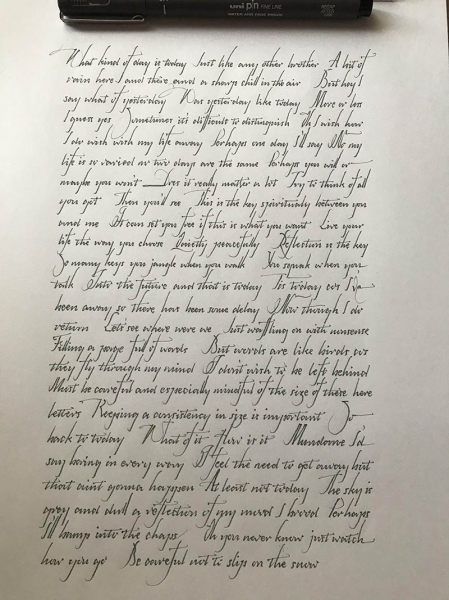 uni pin FINE LINE
WATER AND FADE PROOF
What kind of day is today Just like any other brother A bit of
rain here and there and a sharp chill in the air But hey I
say what of yesterday Was yesterday like today More or less
I guess yes Sometimes it's difficult to distinguish Oh I wish how
I do wish wish my life away Perhaps one day I'll say No my
life is so varied no two days are the same Perhaps you will or
maybe you won't Does it really matter a lot Try to think of all
you got Then you'll see This is the key spiritually between you
and me It can set you free if this is what you want Live your
life the way you choose Quietly peacefully Reflection is the key
So many keys you jangle when you walk You squeak when you
talk Into the future and that is today 'Tis today cos I've
been away so there has been some delay Now though I do
return Let's see where were we Just waffling on with nonsense
Filling a page full of words But words are like birds cos
they fly through my mind I don't wish to be left behind
Must be careful and especially mindful of the size of these here
letters Keeping a consistency in size is important So
back to today What of it How is it Mundane I'd
say being in every way I feel the need to get away but
that aint gonna happen At least not today The sky is
grey and dull a reflection of my mood I brood Perhaps
I'll bump into the chaps Oh you never know just watch
how you go Be careful not to slip on the snow